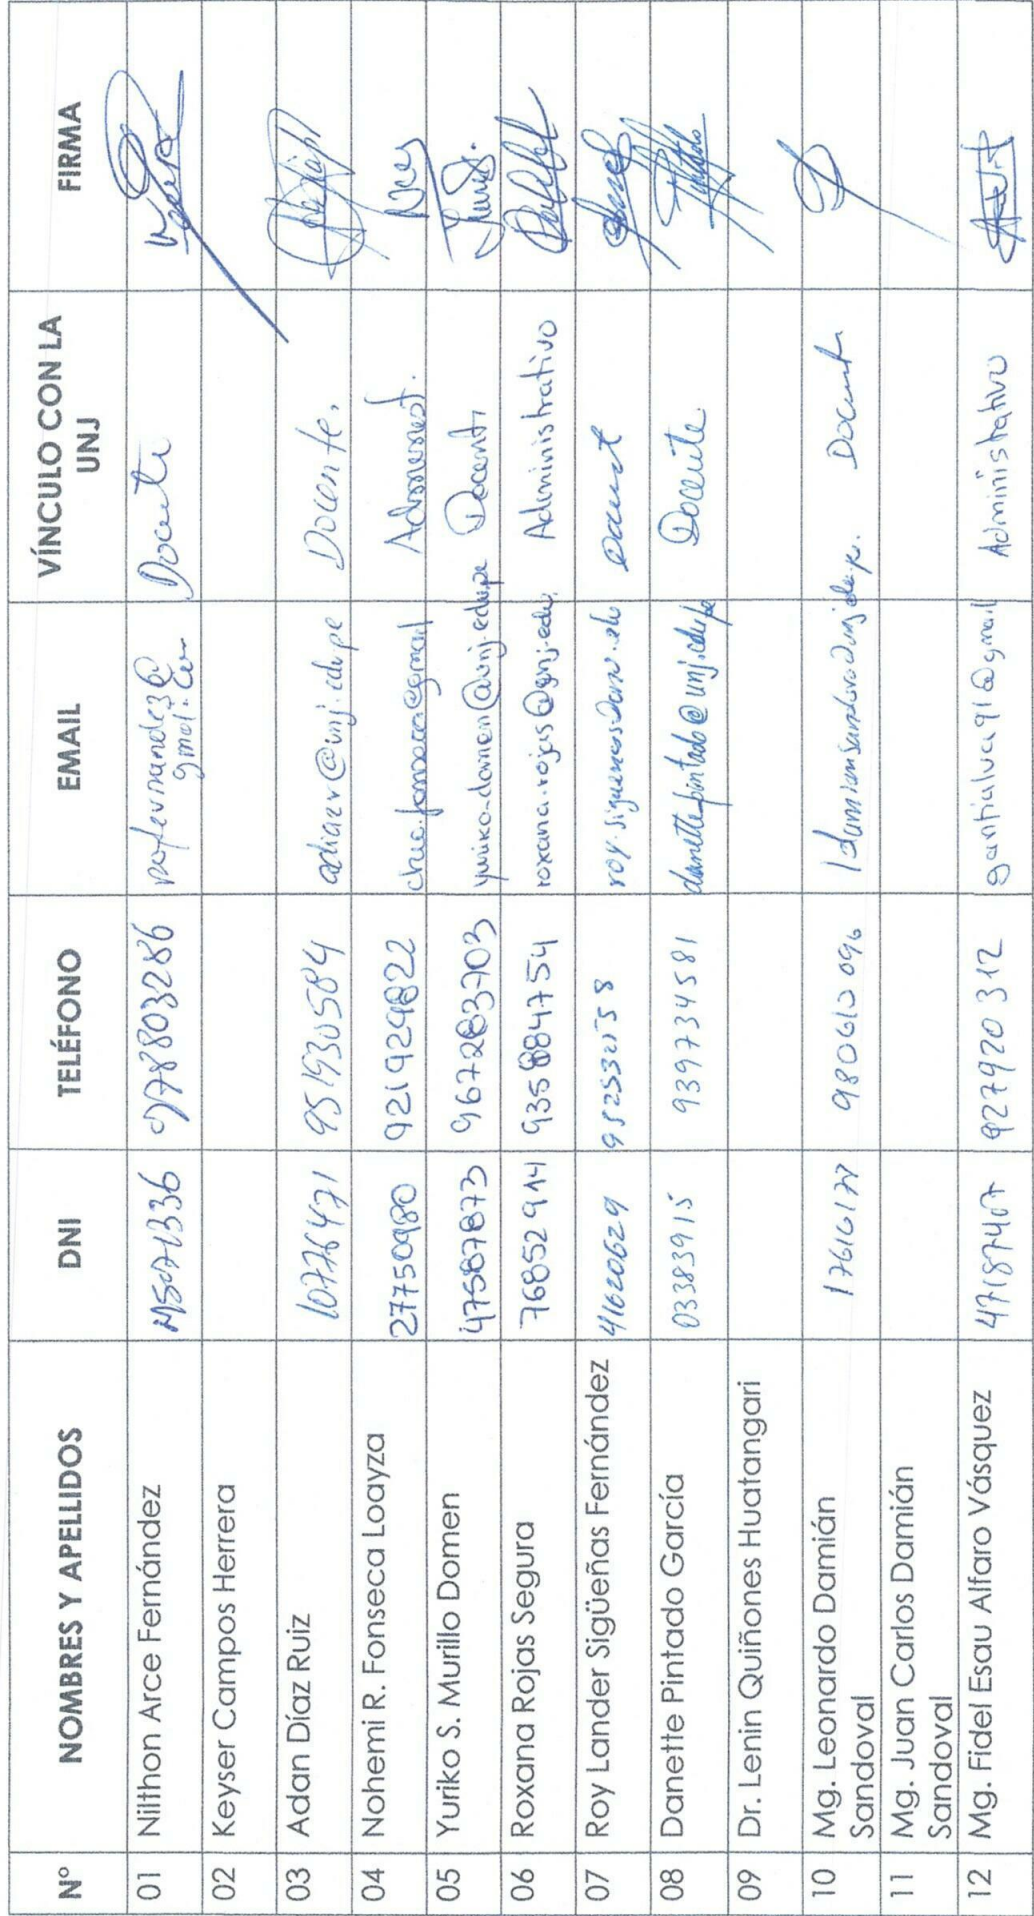 N° NOMBRES Y APELLIDOS DNI TELÉFONO EMAIL VÍNCULO CON LA UNJ FIRMA
01 Nilthon Arce Fernández 978803286 Docente
02 Keyser Campos Herrera
03 Adan Díaz Ruiz 10776471 951930584 adiazr@unj.edu.pe Docente.
04 Nohemi R. Fonseca Loayza 27750980 921929822
05 Yuriko S. Murillo Domen 47587873 967283703 yuriko.domen@unj.edu.pe Docente
06 Roxana Rojas Segura 76852914 935884754 roxana.rojas@unj.edu. Administrativo
07 Roy Lander Sigüeñas Fernández 41620629
08 Danette Pintado García 03383915 939734581 danettepintado@unj.edu.pe Docente
09 Dr. Lenin Quiñones Huatangari
10 Mg. Leonardo Damián Sandoval 980612096 Docente
11 Mg. Juan Carlos Damián Sandoval
12 Mg. Fidel Esau Alfaro Vásquez 47187407 927920312 Administrativo